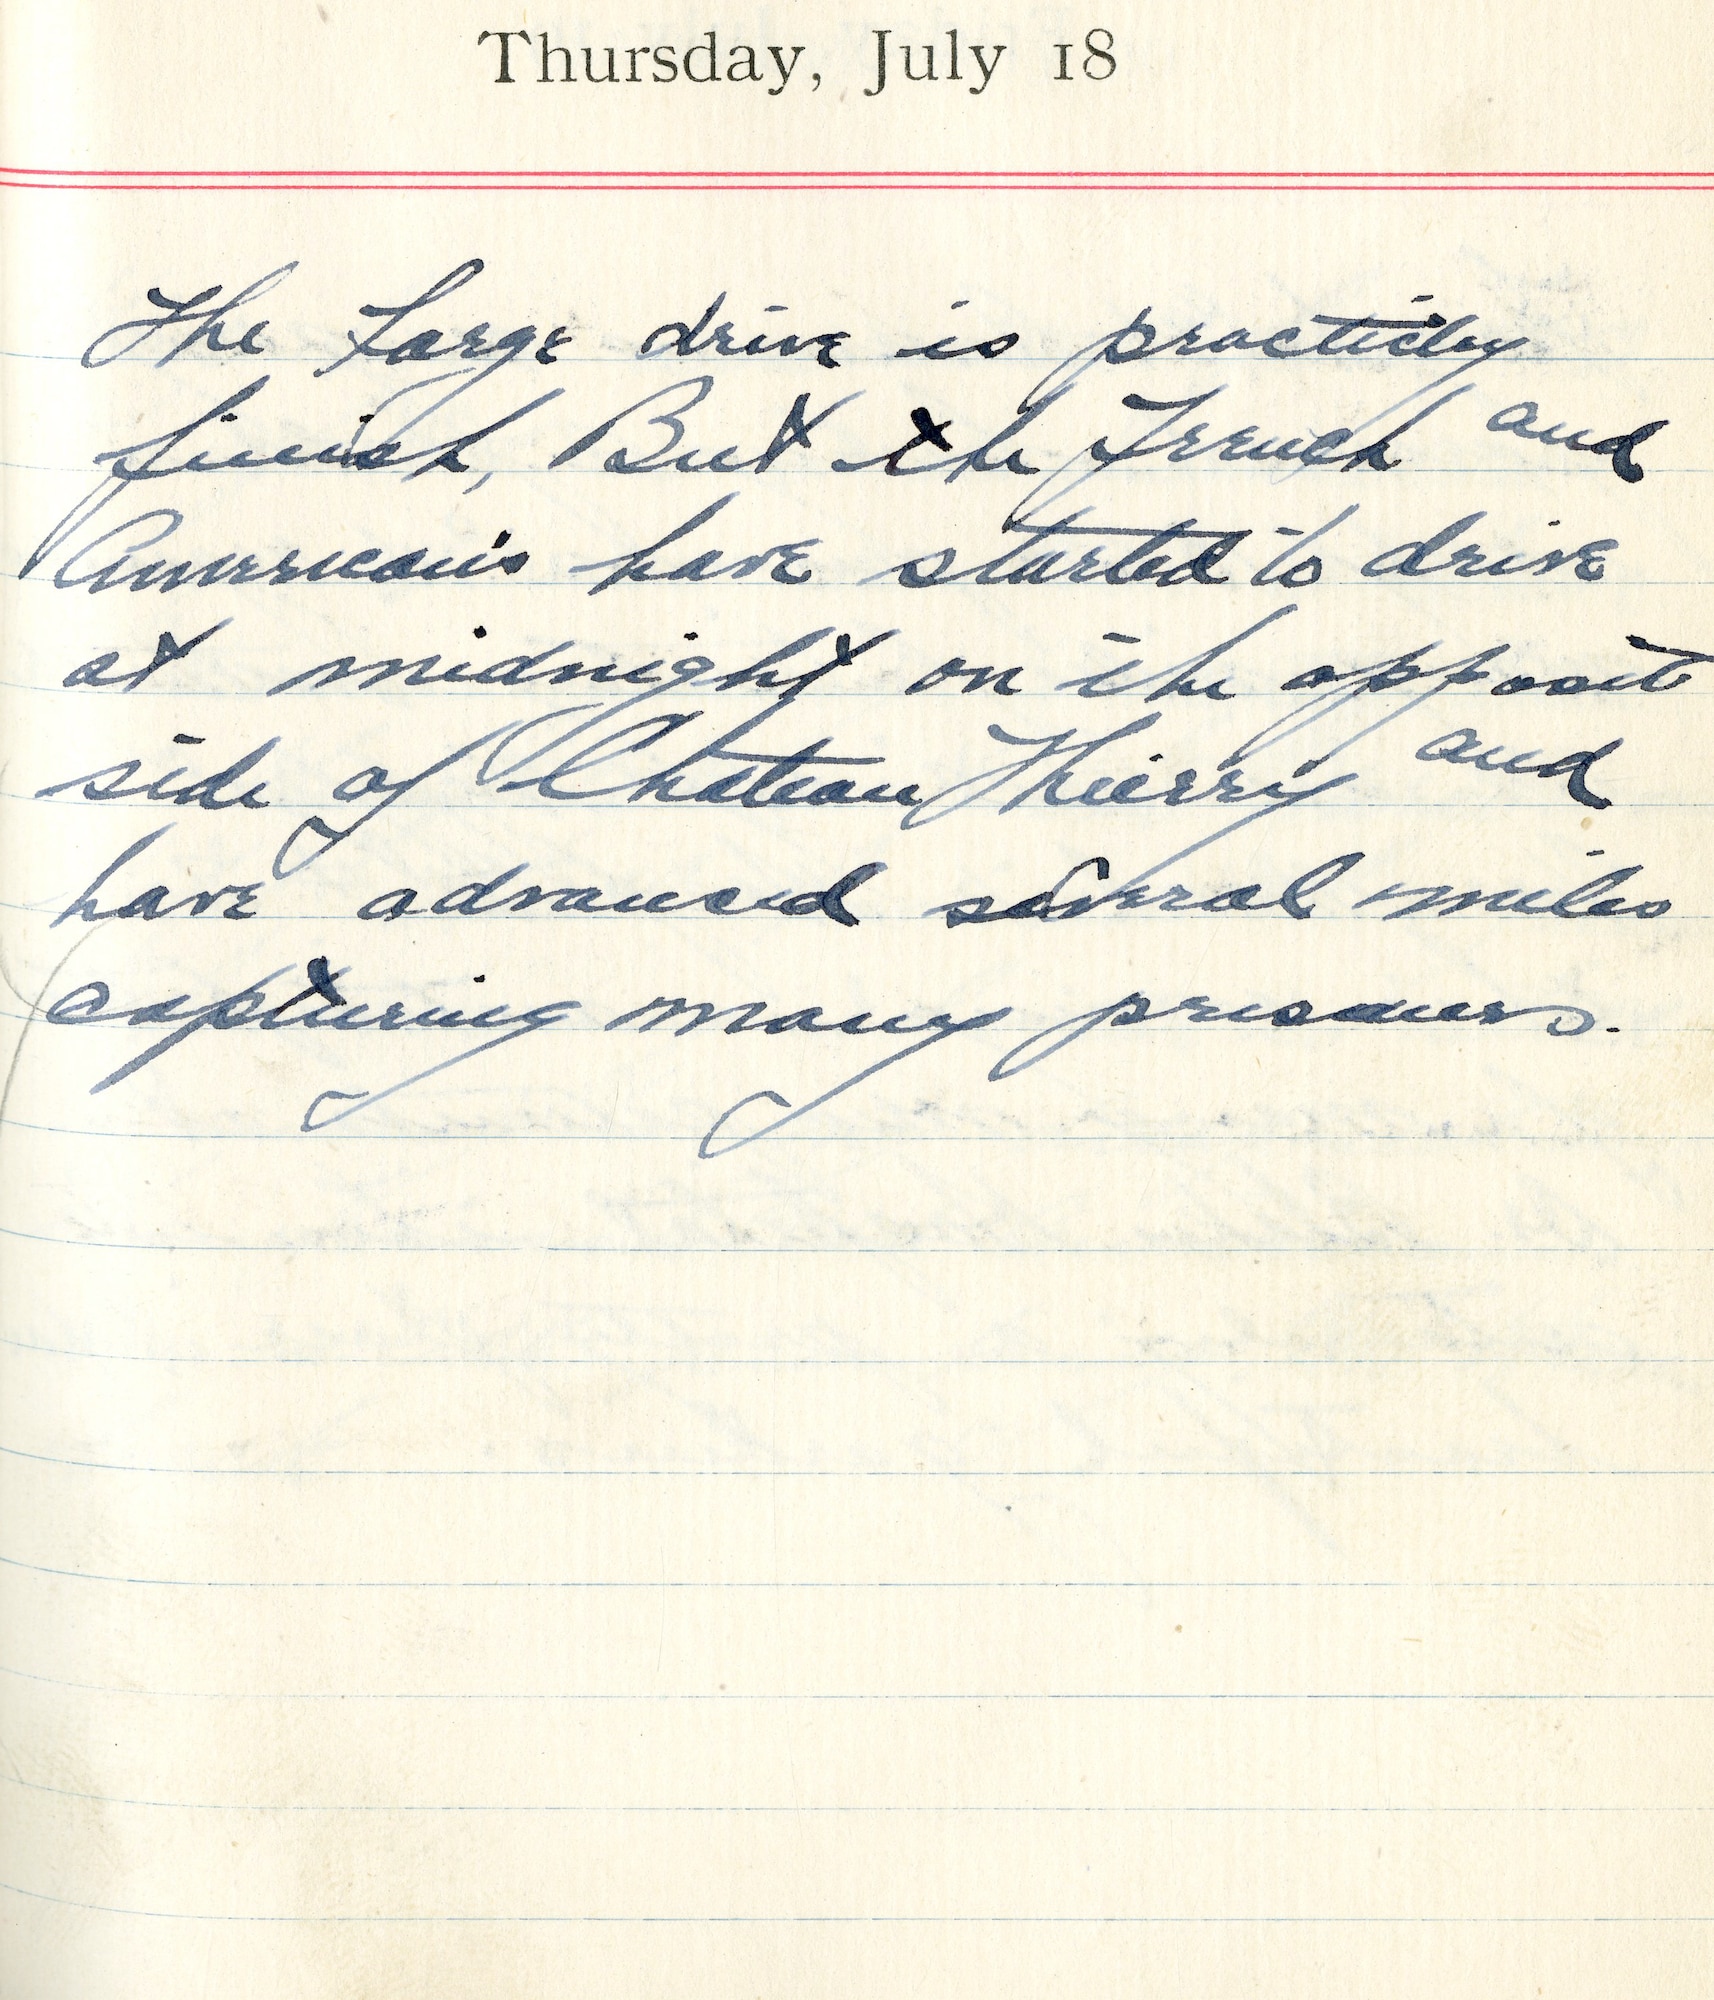 Thursday, July 18
The Large drive is practicly
finish, But the French and
American's have started to drive
at midnight on the opposit
side of Chateau Thierry and
have advanced several miles
capturing many prisoners.